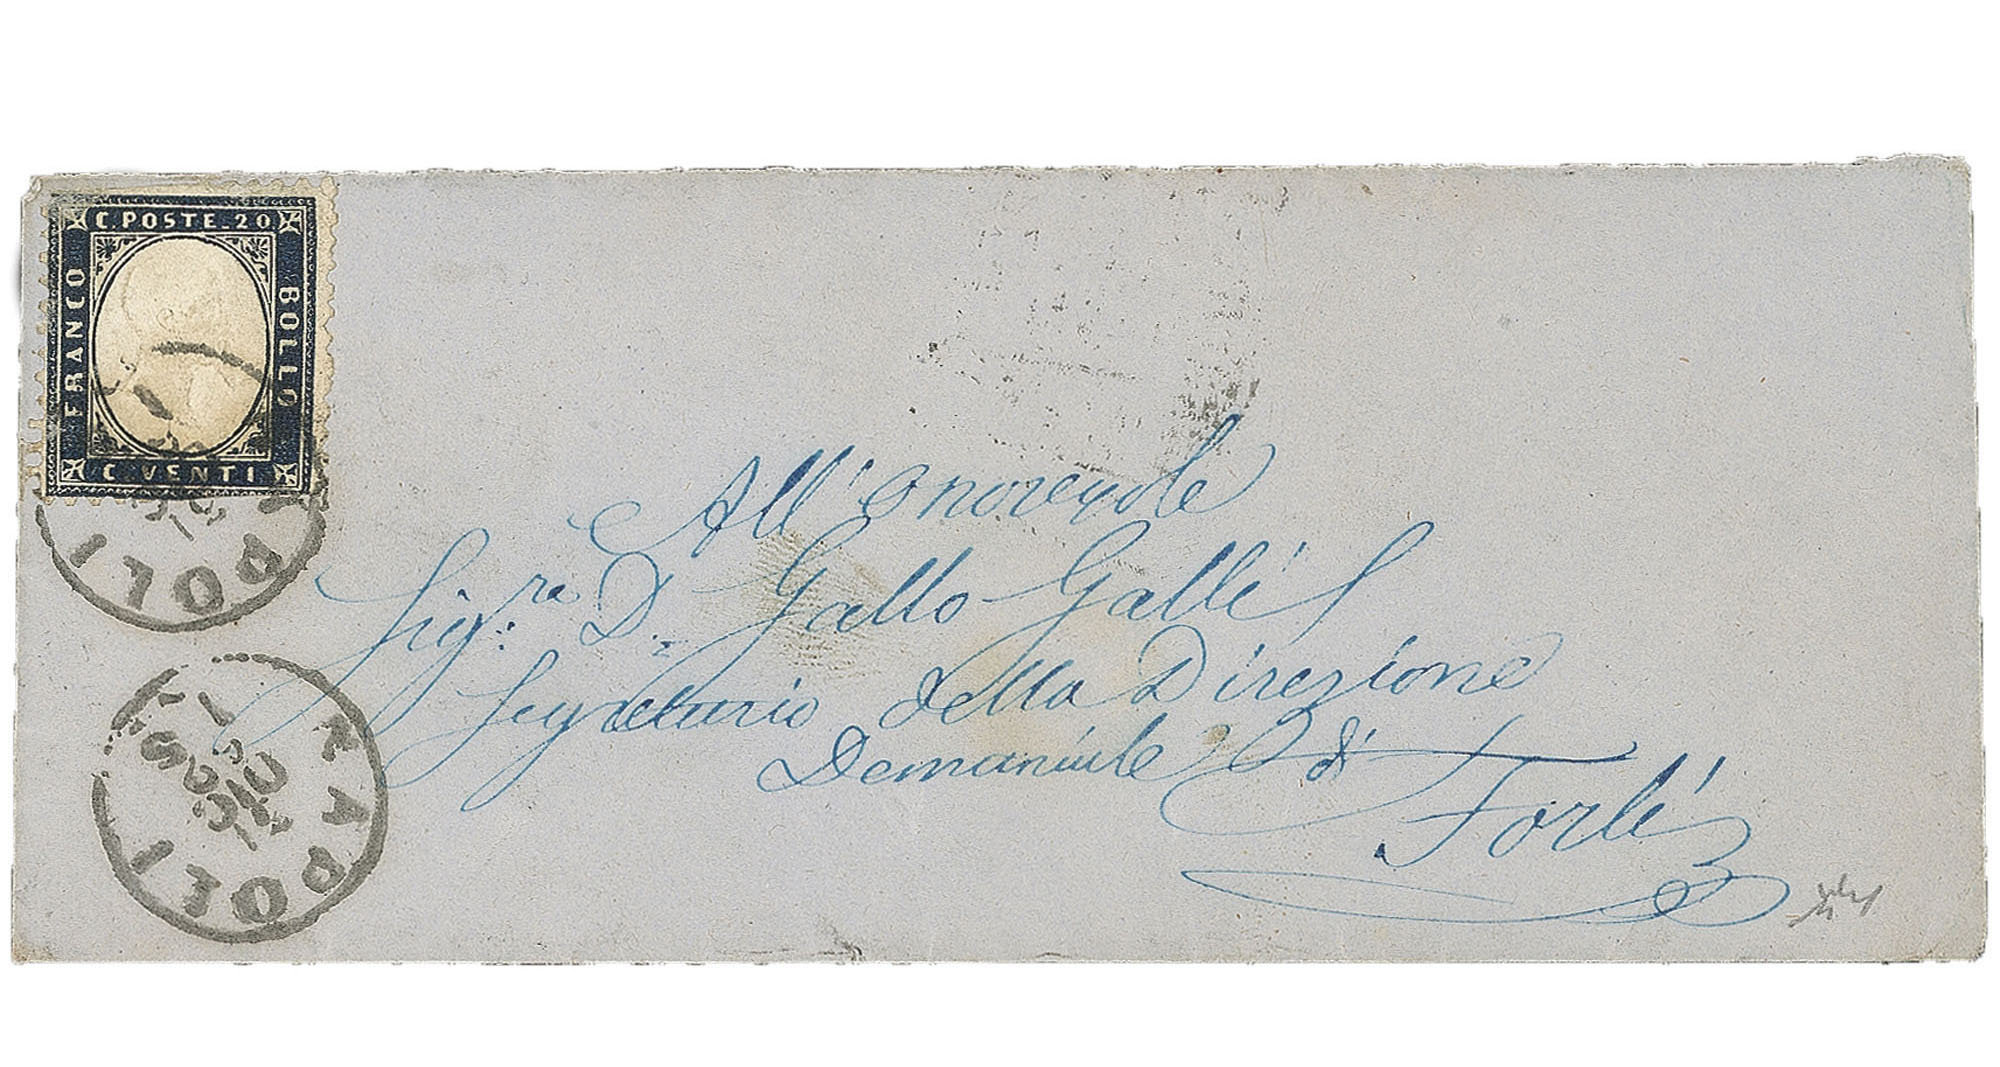 C. POSTE. 20
FRANCO
BOLLO
C. VENTI
POLI
NAPOLI
DIC
All' Onorevole
Sig.ra D. Gallo Gallé
Segretario della Direzione
Demaniale di
Forlì